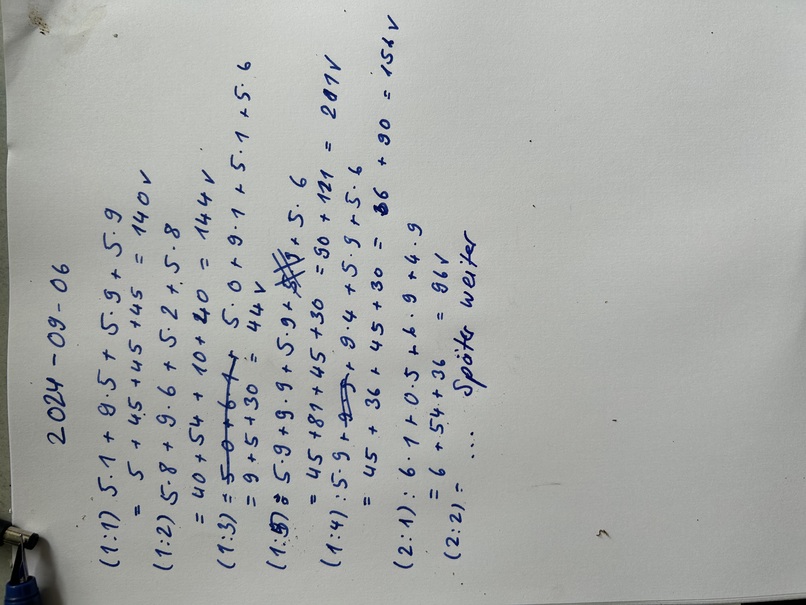 2024-09-06
(1:1) 5·1 + 9·5 + 5·9 + 5·9
= 5 + 45 + 45 + 45 = 140 v
(1:2) 5·8 + 9·6 + 5·2 + 5·8
= 40 + 54 + 10 + 40 = 144 v
(1:3) = 5·0 + 6·1 + 5·0 + 9·1 + 5·1 + 5·6
= 9 + 5 + 30 = 44 v
(1:5) = 5·9 + 9·9 + 5·9 + 5·9 + 5·6
= 45 + 81 + 45 + 30 = 90 + 121 = 201 v
(1:4) : 5·9 + 9·9 + 9·4 + 5·9 + 5·6
= 45 + 36 + 45 + 30 = 66 + 90 = 156 v
(2:1) : 6·1 + 0·5 + 6·9 + 4·9
= 6 + 54 + 36 = 96 v
(2:2) = ... Später weiter